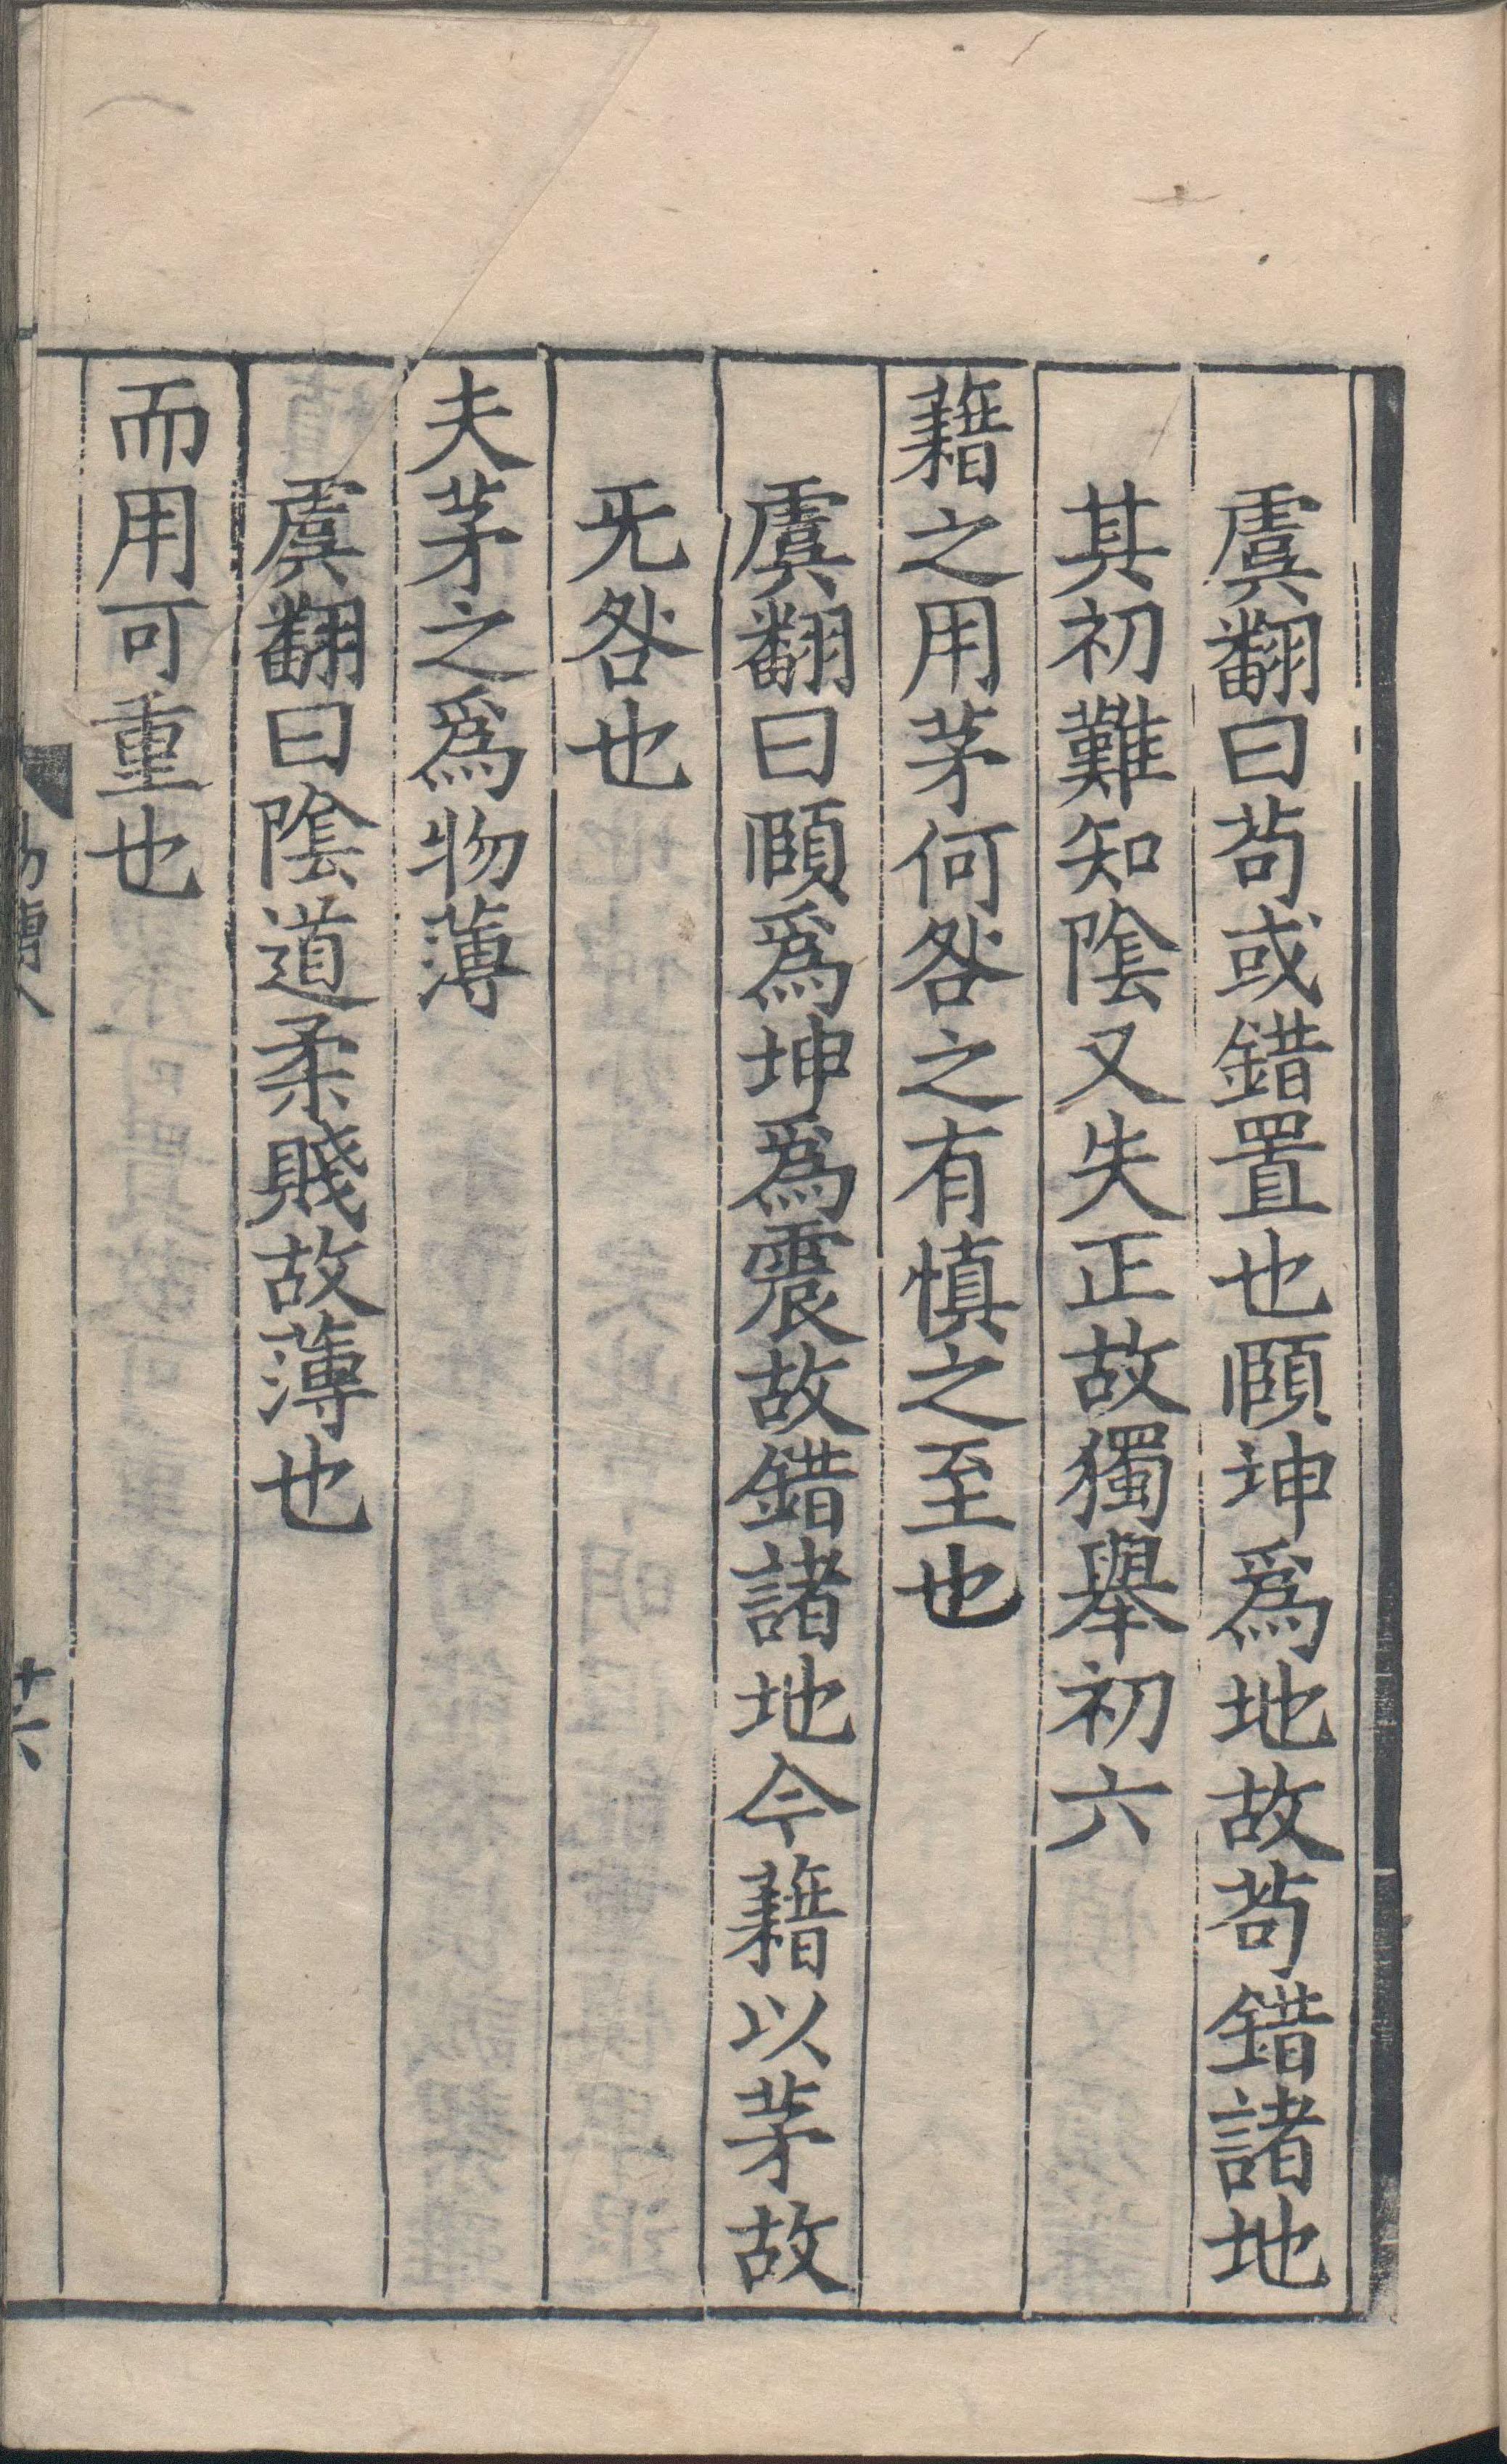 虞翻曰苟或錯置也頤坤爲地故苟錯諸地
其初難知陰又失正故獨舉初六
藉之用茅何咎之有慎之至也
虞翻曰頤爲坤爲震故錯諸地今藉以茅故
无咎也
夫茅之爲物薄
虞翻曰陰道柔賤故薄也
而用可重也
易傳八
十六